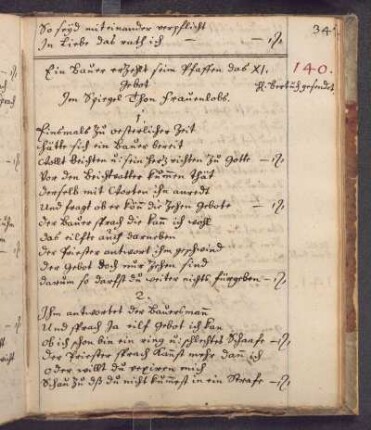 So seyd miteinander verpflicht
In Liebe das rath ich
34
Ein Baur erzehlt seim Pfaffen das XI.
Gebot
140.
Im Spiegel Thon Frauenlobs.
1.
Einsmals zu oesterlicher Zeit
hätte sich ein Bauer bereit
Wolt Beichten u: sein hertz richten zu Gotte
Vor den Beichtvatter kummen thät
derselb mit Worten ihn anredt
Und fragt ob er könn die Zehen Gebote
der Bauer sprach die kann ich wohl
das eilffte auch darneben
der Priester antwort ihm geschwind
der Gebot doch nur Zehen sind
darum so darfst du weiter nichts fürgeben
2.
Ihm antwortet der Bauersmann
Und sprach Ja eilf Gebot ich kan
ob ich schon bin ein ring u: schlechtes Schaafe
der Priester sprach kanst mehr dann ich
oder willt du vexiren mich
Schau zu dß du nicht kummest in ein Straffe